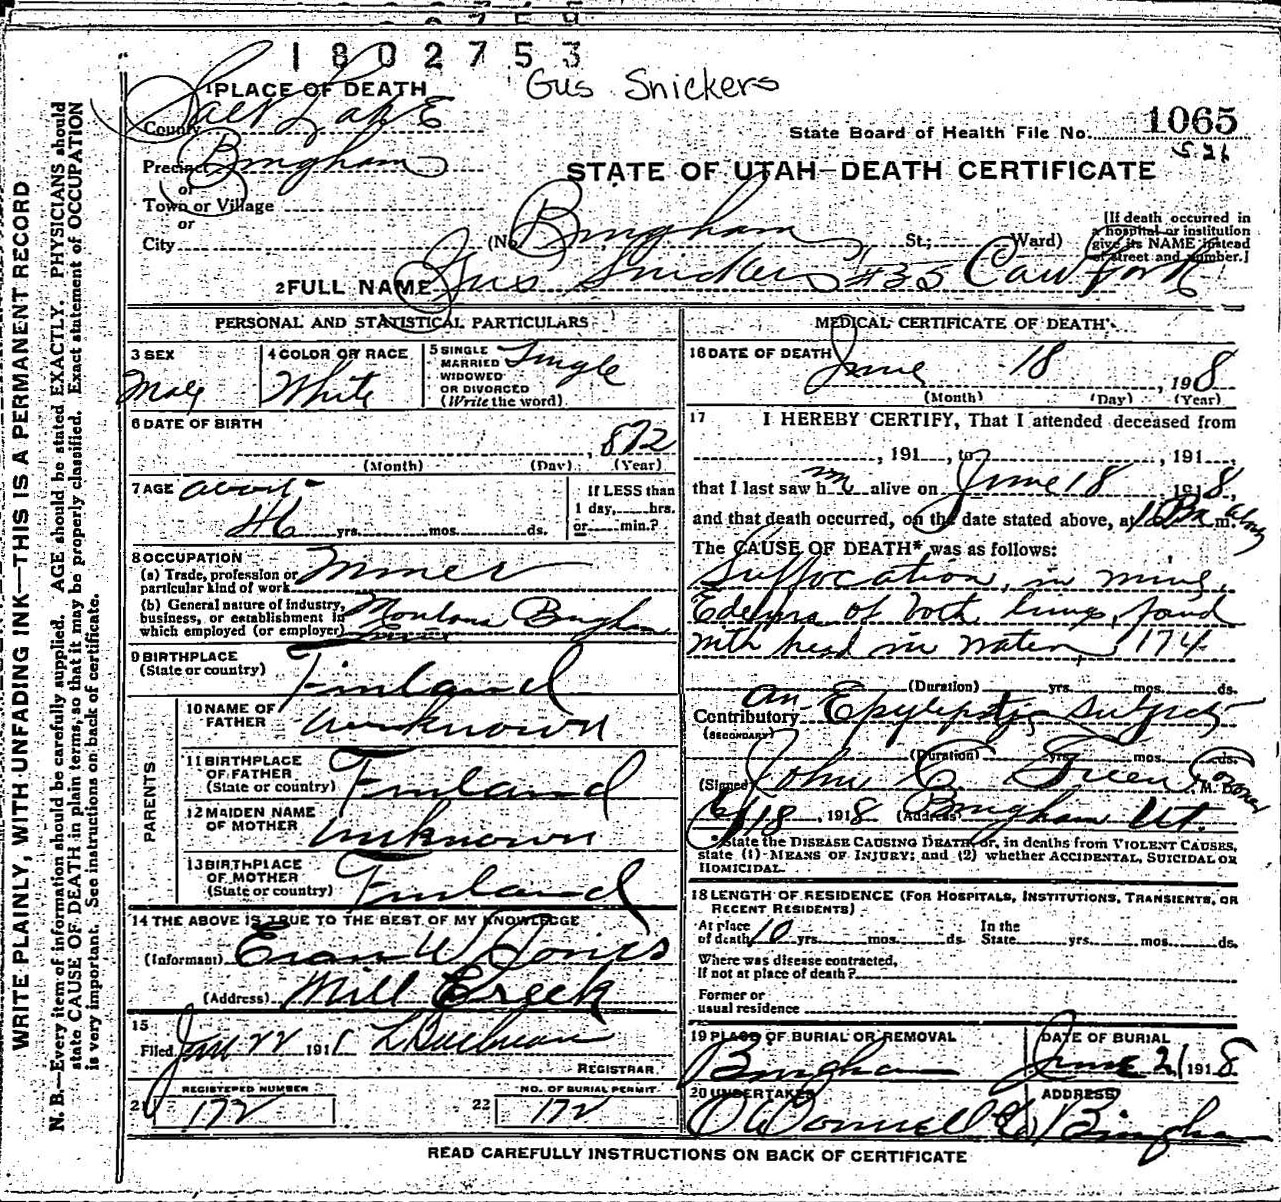 1802753
Gus Snickers
1 PLACE OF DEATH
County Salt Lake
State Board of Health File No. 1065
521
Precinct Bingham
or
STATE OF UTAH—DEATH CERTIFICATE
Town or Village
or
City (No. Bingham, St.; Ward)
[If death occurred in
a hospital or institution
give its NAME instead
of street and number.]
2 FULL NAME Gus Snickers #35
PERSONAL AND STATISTICAL PARTICULARS
3 SEX
Male
4 COLOR OR RACE
White
5 SINGLE
MARRIED
WIDOWED
OR DIVORCED
(Write the word)
Single
6 DATE OF BIRTH
, 872
(Month) (Day) (Year)
7 AGE about
46 yrs. mos. ds.
If LESS than
1 day, hrs.
or min.?
8 OCCUPATION
(a) Trade, profession or
particular kind of work Miner
(b) General nature of industry,
business, or establishment in
which employed (or employer) Montana Bingham
9 BIRTHPLACE
(State or country) Finland
PARENTS
10 NAME OF
FATHER unknown
11 BIRTHPLACE
OF FATHER
(State or country) Finland
12 MAIDEN NAME
OF MOTHER unknown
13 BIRTHPLACE
OF MOTHER
(State or country) Finland
14 THE ABOVE IS TRUE TO THE BEST OF MY KNOWLEDGE
(Informant) Evan W Jones
(Address) Mill Creek
15
Filed 22 191
REGISTRAR.
REGISTERED NUMBER
21 172
NO. OF BURIAL PERMIT.
22 172
MEDICAL CERTIFICATE OF DEATH
16 DATE OF DEATH
June 18, 1918
(Month) (Day) (Year)
17 I HEREBY CERTIFY, That I attended deceased from
, 191 , to , 191 ,
that I last saw him alive on June 18 1918,
and that death occurred, on the date stated above, at m.
The CAUSE OF DEATH* was as follows:
Suffocation, in mine,
Edema of both lungs, found
with head in water, 174
(Duration) yrs. mos. ds.
Contributory an Epyleptic subject
(SECONDARY)
(Duration) yrs. mos. ds.
(Signed) John C Green Coroner, M. D.
6/18, 1918 (Address) Bingham Ut.
*State the DISEASE CAUSING DEATH or, in deaths from VIOLENT CAUSES,
state (1) MEANS OF INJURY; and (2) whether ACCIDENTAL, SUICIDAL OR
HOMICIDAL.
18 LENGTH OF RESIDENCE (FOR HOSPITALS, INSTITUTIONS, TRANSIENTS, OR
RECENT RESIDENTS)
At place
of death 10 yrs. mos. ds.
In the
State yrs. mos. ds.
Where was disease contracted,
If not at place of death?
Former or
usual residence
19 PLACE OF BURIAL OR REMOVAL
Bingham
DATE OF BURIAL
June 21 1918
20 UNDERTAKER
O'Donnell & Co
ADDRESS
Bingham
READ CAREFULLY INSTRUCTIONS ON BACK OF CERTIFICATE
WRITE PLAINLY, WITH UNFADING INK—THIS IS A PERMANENT RECORD
N. B.—Every item of information should be carefully supplied. AGE should be stated EXACTLY. PHYSICIANS should
state CAUSE OF DEATH in plain terms, so that it may be properly classified. Exact statement of OCCUPATION
is very important. See instructions on back of certificate.